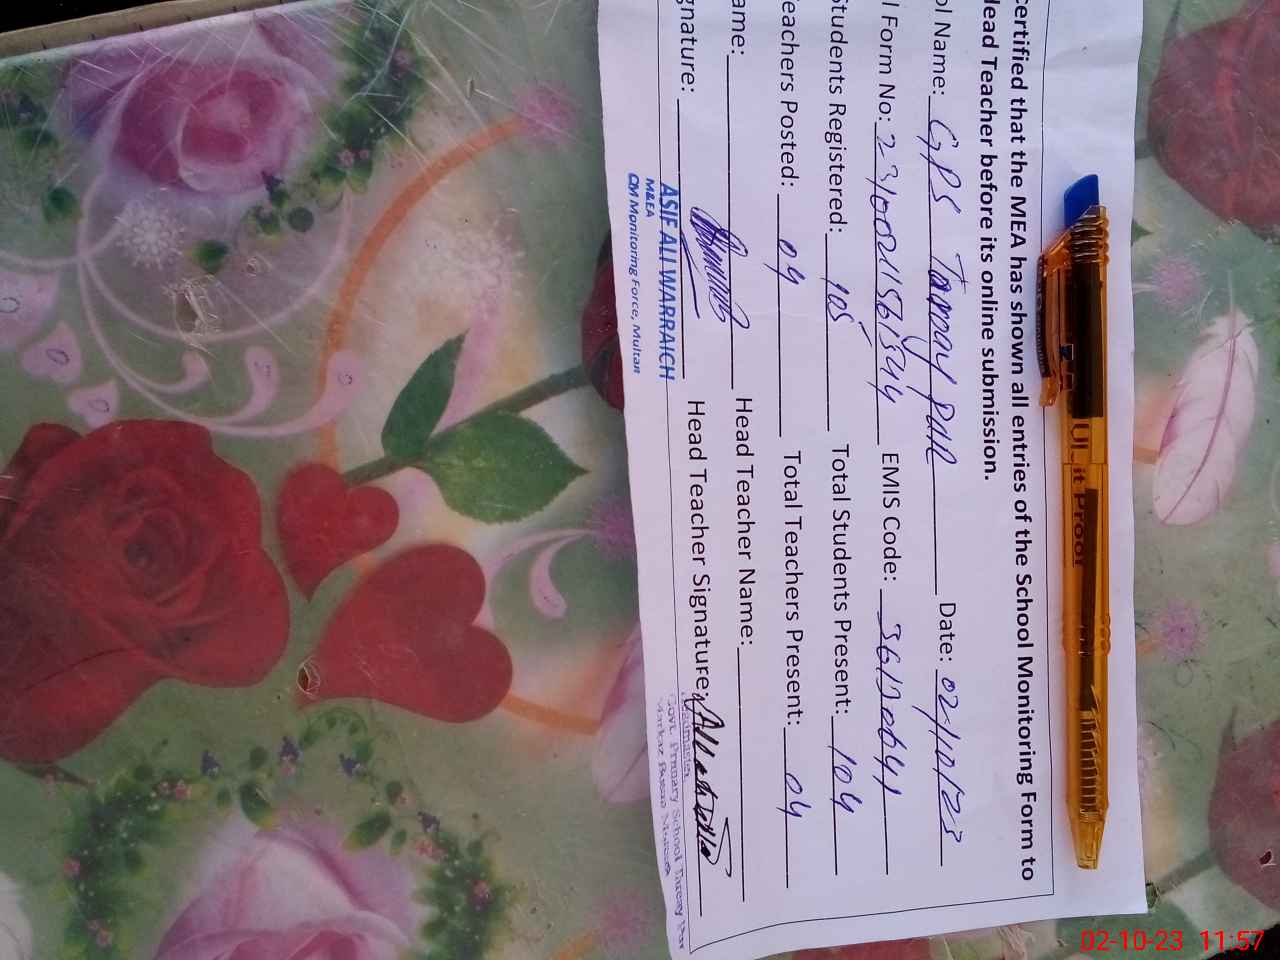 certified that the MEA has shown all entries of the School Monitoring Form to
Head Teacher before its online submission.
ol Name: GPS Tarray pur Date: 02/10/23
l Form No: EMIS Code: 36120641
Students Registered: 105 Total Students Present: 104
Teachers Posted: 04 Total Teachers Present: 04
ame: Head Teacher Name:
gnature: Head Teacher Signature:
ASIF ALI WARRAICH
M&EA
CM Monitoring Force, Multan
Headmaster
Govt. Primary School
Markaz
02-10-23 11:57